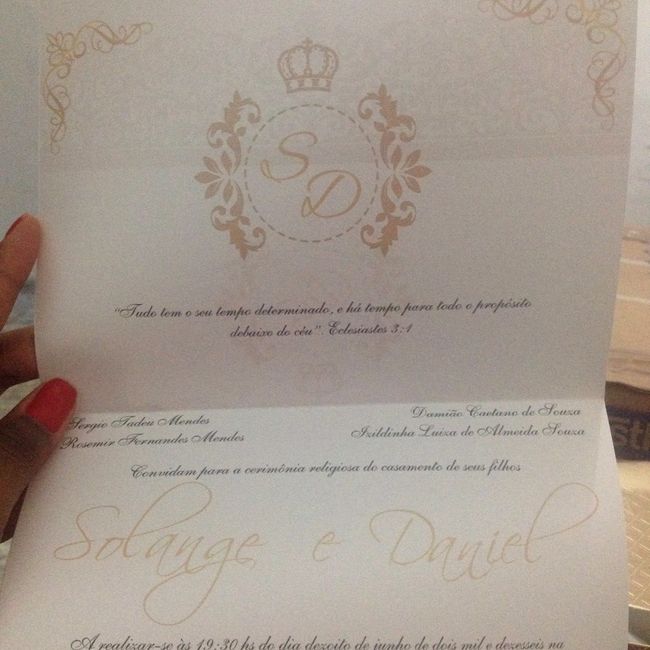 S
D
"Tudo tem o seu tempo determinado, e há tempo para todo o propósito
debaixo do céu". Eclesiastes 3:1
Sergio Tadeu Mendes
Rosemir Fernandes Mendes
Damião Caetano de Souza
Izildinha Luiza de Almeida Souza
Convidam para a cerimônia religiosa do casamento de seus filhos
Solange e Daniel
A realizar-se às 19:30 hs do dia dezoito de junho de dois mil e dezesseis na